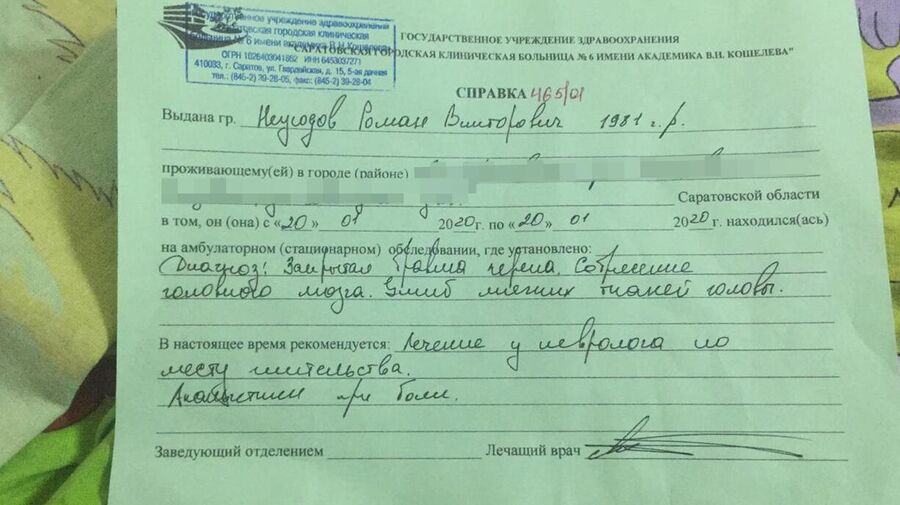 Государственное учреждение здравоохранения
Саратовская городская клиническая
больница № 6 имени академика В.Н. Кошелева"
ОГРН 1026403041852 ИНН 6453037271
410033, г. Саратов, ул. Гвардейская, д. 15, 5-ая дачная
тел.: (845-2) 39-28-05, факс: (845-2) 39-28-04
ГОСУДАРСТВЕННОЕ УЧРЕЖДЕНИЕ ЗДРАВООХРАНЕНИЯ
САРАТОВСКАЯ ГОРОДСКАЯ КЛИНИЧЕСКАЯ БОЛЬНИЦА № 6 ИМЕНИ АКАДЕМИКА В.Н. КОШЕЛЕВА"
СПРАВКА 465/01
Выдана гр. Неугодов Роман Викторович 1981 г.р.
проживающему(ей) в городе (районе)
Саратовской области
в том, он (она) с «20» 01 2020г. по «20» 01 2020г. находился(ась)
на амбулаторном (стационарном) обследовании, где установлено:
Диагноз: Закрытая травма черепа. Сотрясение
головного мозга. Ушиб мягких тканей головы.
В настоящее время рекомендуется: Лечение у невролога по
месту жительства.
при боли.
Заведующий отделением
Лечащий врач